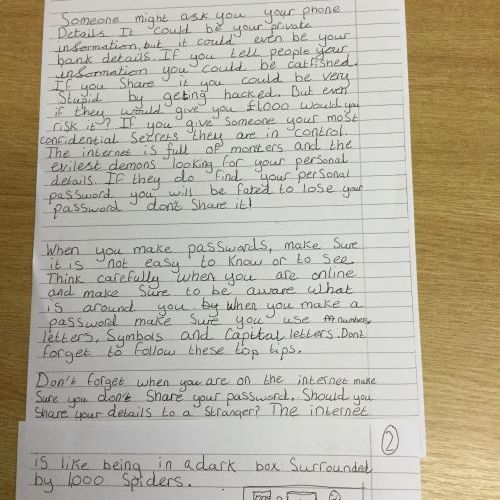 Someone might ask you your phone
Details It could be your private
information, but it could even be your
bank details. If you tell people your
information you could be catfished.
If you share it you could be very
stupid by geting hacked. But even
if they would give you £1000 would you
risk it? If you give someone your most
confidential secrets they are in control.
The internet is full of monters and the
evilest demons looking for your personal
details. If they do find your personal
password you will be fated to lose your
password don't share it!
When you make passwords, make sure
it is not easy to know or to see.
Think carefully when you are online
and make sure to be aware what
is around you. by When you make a
password make sure you use numbers,
letters, symbols and capital letters. Don't
forget to follow these top tips.
Don't forget when you are on the internet make
sure you don't share your password. Should you
share your details to a stranger? The internet
2
is like being in a dark box surrounded
by 1,000 spiders.